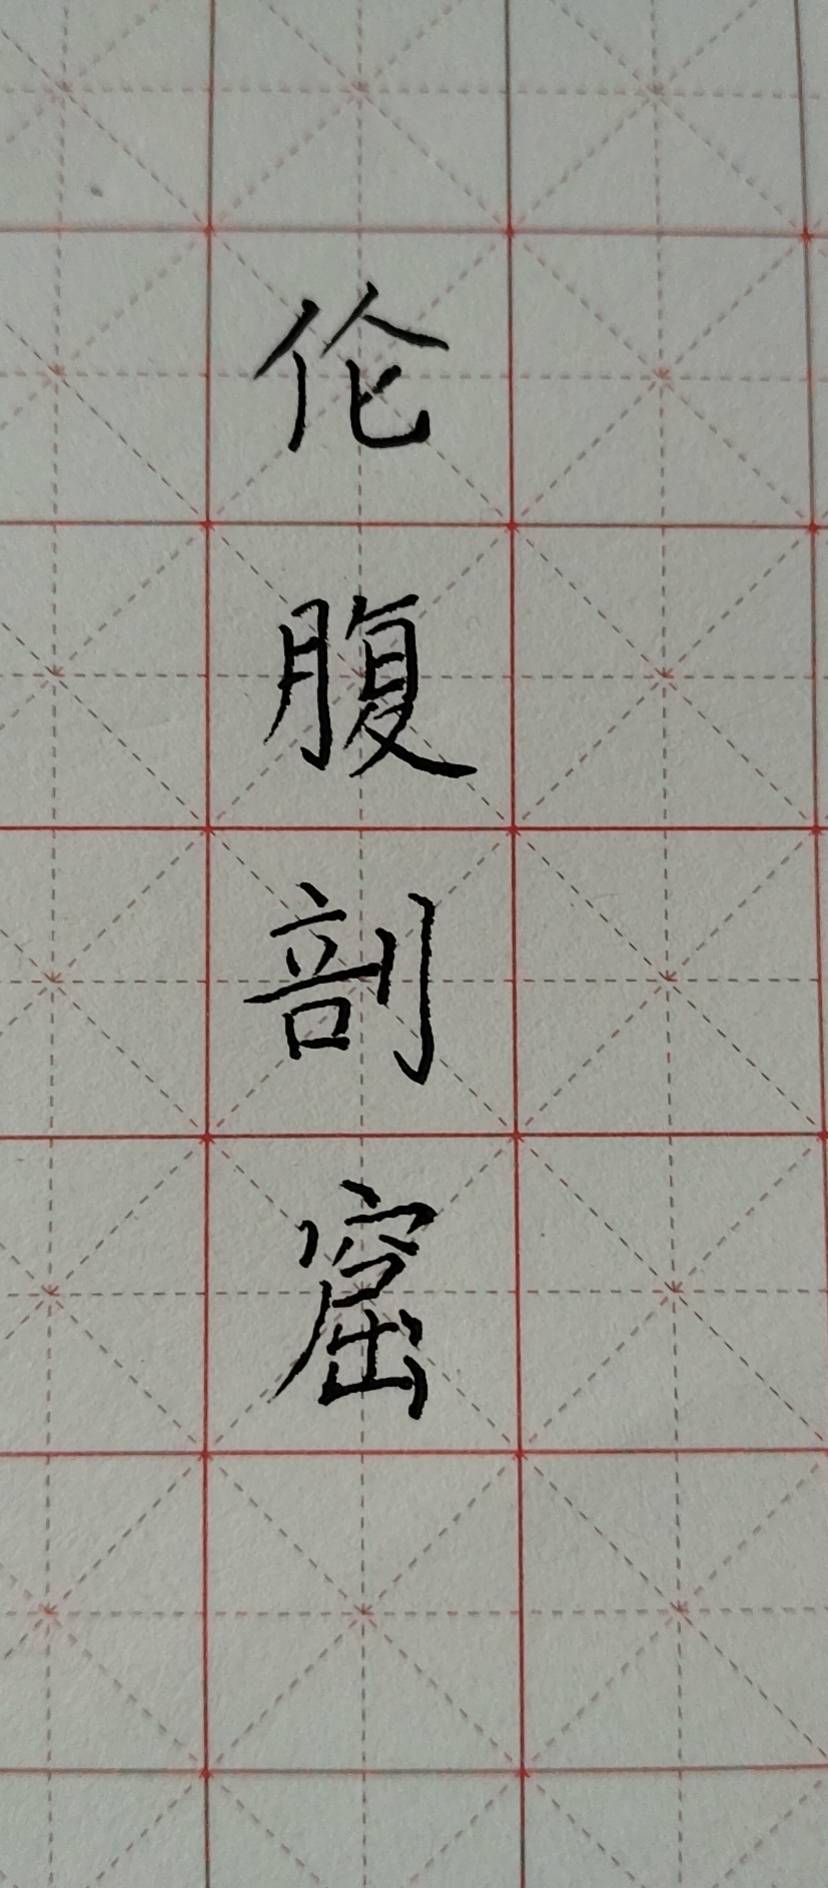 伦腹剖窟